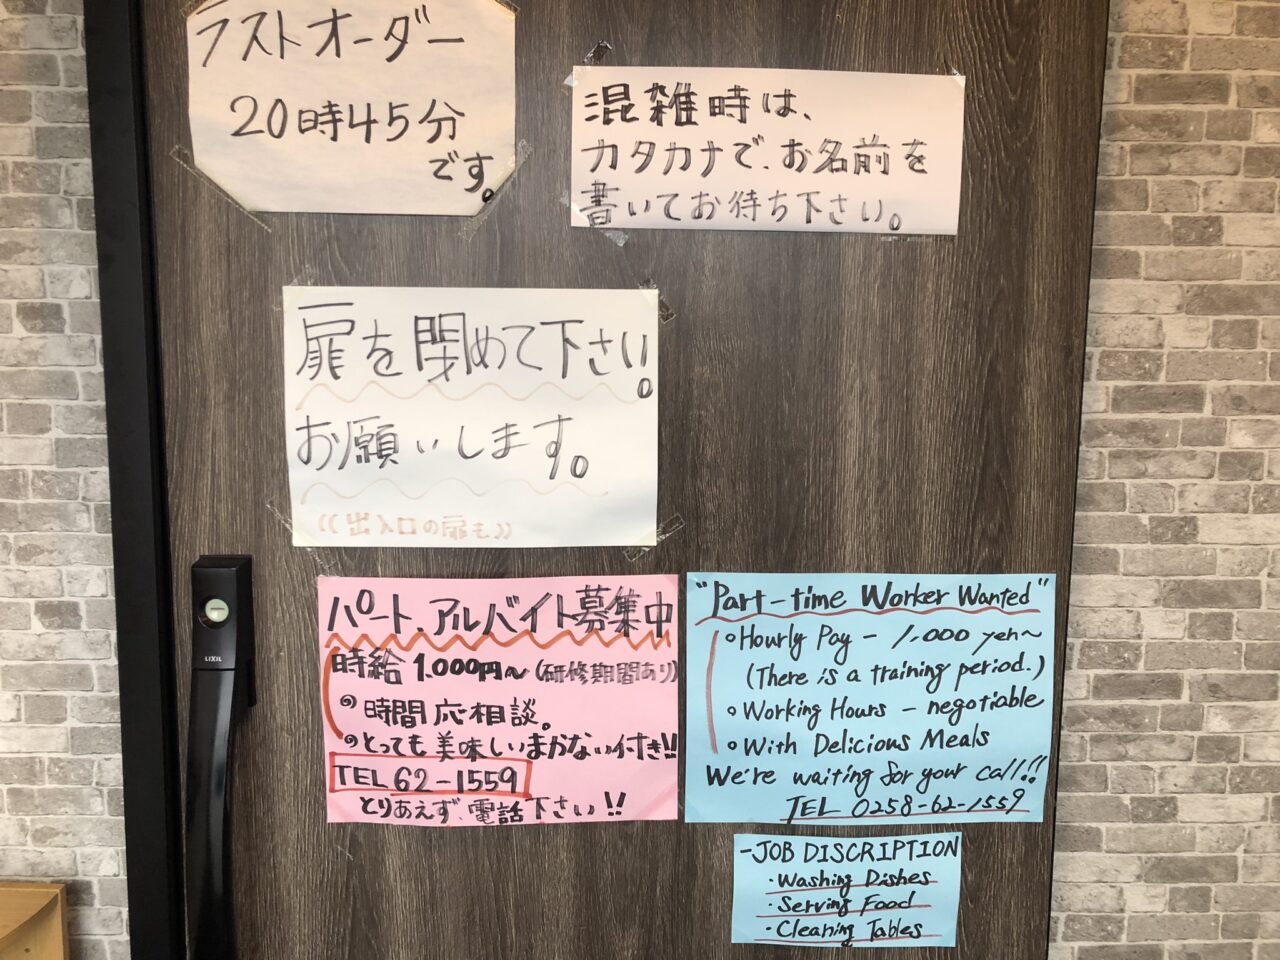 ラストオーダー
20時45分
です。
混雑時は、
カタカナで、お名前を
書いてお待ち下さい。
扉を閉めて下さい。
お願いします。
((出入口の扉も))
パート、アルバイト募集中
時給 1.000円〜(研修期間あり)
時間応相談。
とっても美味しいまかない付き!!
TEL 62-1559
とりあえず、電話下さい!!
"Part-time Worker Wanted"
Hourly Pay - 1,000 yen~
(There is a training period.)
Working Hours - negotiable
With Delicious Meals
We're waiting for your call!!
TEL 0258-62-1559
-JOB DISCRIPTION
・Washing Dishes
・Serving Food
・Cleaning Tables
LIXIL